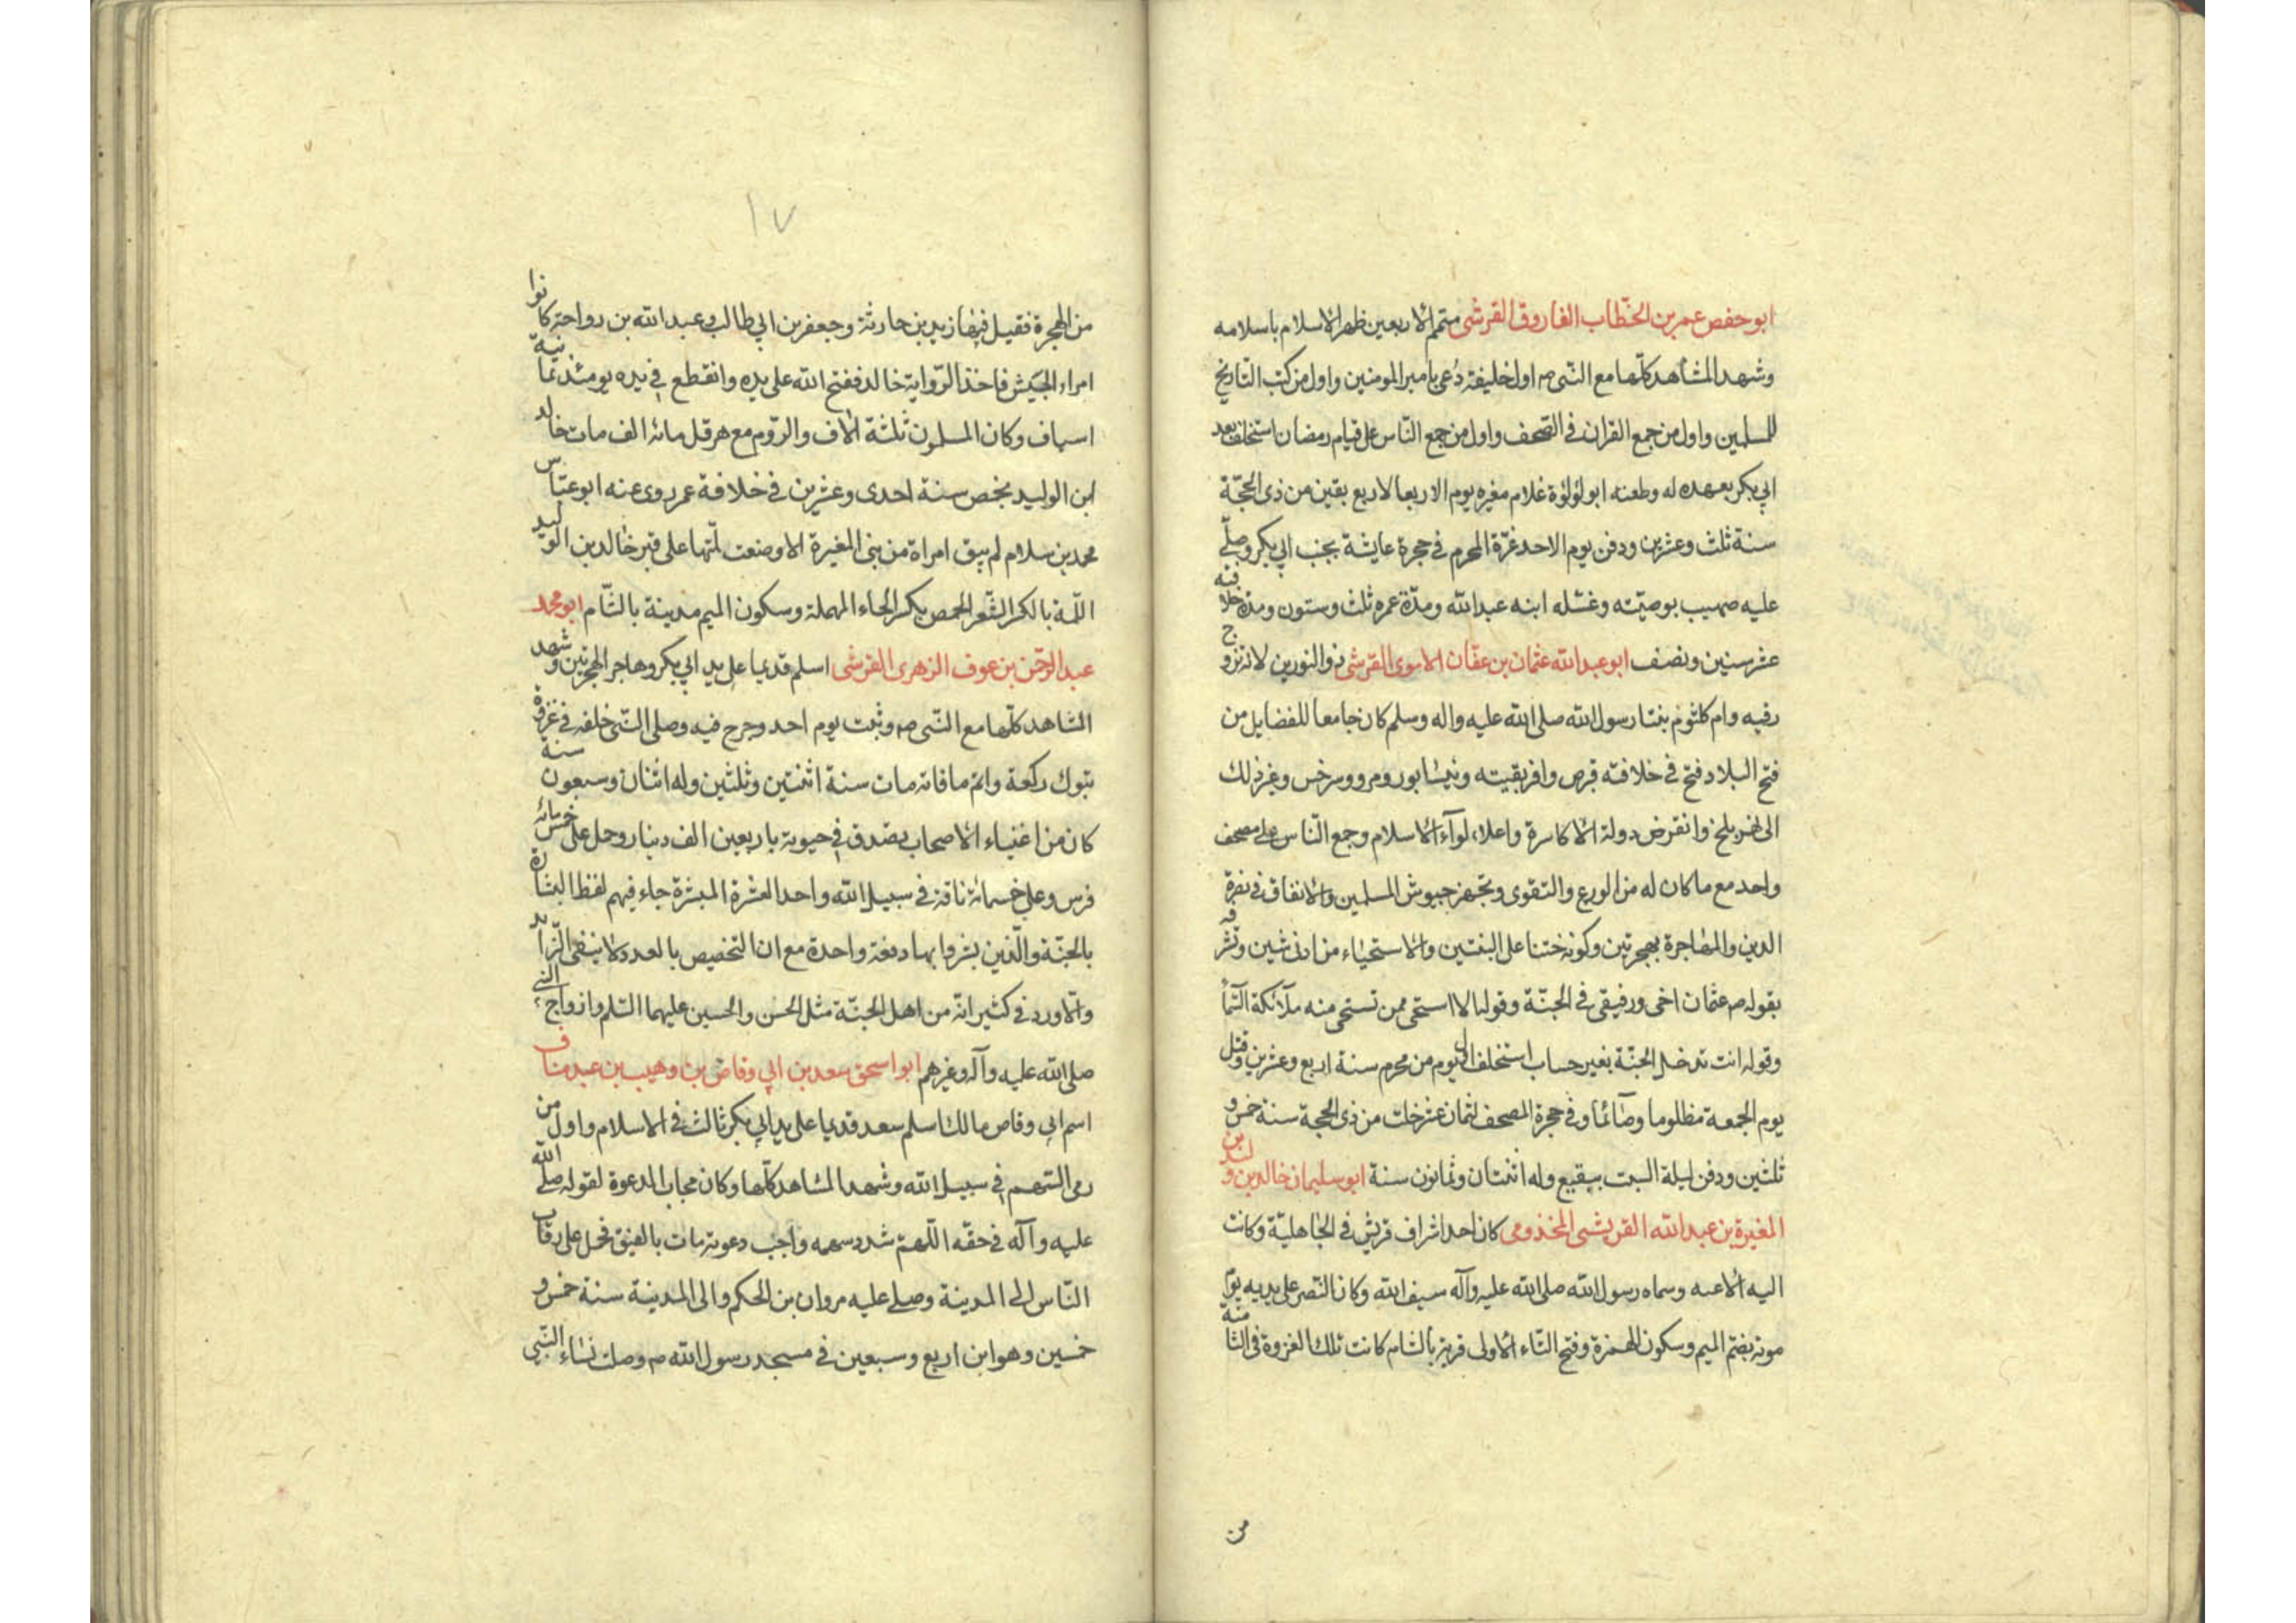 ابو حفص عمر بن الخطاب الفاروق القرشى متمم الاربعين ظهر الاسلام باسلامه
وشهد المشاهد كلها مع النبى ص اول خليفة دُعى بامير المومنين واول من كتب التاريخ
للمسلمين واول من جمع القران فى الصحف واول من جمع الناس على قيام رمضان استخلف بعد
ابي بكر بعهده له وطعنه ابو لؤلؤة غلام مغيره يوم الاربعا لاربع بقين من ذى الحجّة
سنة ثلث وعشرين ودفن يوم الاحد غرّة المحرم فى حجرة عايشة بجنب ابي بكر وصلّى
عليه صهيب بوصيّته وغسّله ابنه عبد الله ومدّة عمره ثلث وستون ومدّة خلافته
عشر سنين ونصف ابو عبد الله عثمان بن عفّان الاموى القرشى ذو النورين لانه تزوج
رقيه وام كلثوم بنتا رسول الله صلى الله عليه واله وسلم كان جامعا للفضايل من
فتح البلاد فتح فى خلافته قبرص وافريقيته ونيشابور ومرو وسرخس وغير ذلك
الى نهر بلخ وانقرض دولة الاكاسرة واعلاء لوآء الاسلام وجمع النّاس على مصحف
واحد مع ما كان له من الورع والتقوى وتجهيز جيوش المسلمين والانفاق فى نصرة
الدين والمهاجرة بهجرتين وكونه ختنا على البنتين والاستحياء من ان شين وتشرفه
بقوله ص عثمان اخى ورفيقى فى الجنّة وقوله الا استحى ممن تستحى منه ملآئكة السّمآ
وقوله انت تدخل الجنّة بغير حساب استخلف اول يوم من محرم سنة اربع وعشرين وقتل
يوم الجمعة مظلوما وصآئما وفى حجرة المصحف لثمان عشر خلت من ذى الحجة سنة خمس و
ثلثين ودفن ليلة السبت ببقيع وله اثنتان وثمانون سنة ابو سليمان خالد بن وليد بن
المغيرة بن عبد الله القريشى المخذومى كان احد اشراف قريش فى الجاهليّة وكانت
اليه الاعنه وسماه رسول الله صلى الله عليه وآله سيف الله وكان النّصر على يديه يوم
موته بضم الميم وسكون الهمزة وفتح التّاء الاولى قرية بالشام كانت تلك الغزوة فى الثامنة
من
١٧
من الهجرة فقيل فيها زيد بن حارثة وجعفر بن ابي طالب وعبد الله بن رواحة كانوا
امراء الجيش فاخذ الرّواية خالد ففتح الله على يده وانقطع فى يده يومئذ ثمانية
اسياف وكان المسلمون ثلثة الاف والروم مع هرقل مائة الف مات خالد
ابن الوليد بحمص سنة احدى وعشرين فى خلافة عمر روى عنه ابو عبّاس
محمد بن سلام لم يبق امراة من بنى المغيرة الا وضعت لمّتها على قبر خالد بن الوليد
اللّمة بالكسر الشّعر الحمص بكسر الحاء المهملة وسكون الميم مدينة بالشّام ابو محمد
عبد الرحمن بن عوف الزهرى القرشى اسلم قديما على يد ابي بكر وهاجر الهجرتين وشهد
المشاهد كلّها مع النّبى ص وثبت يوم احد وجرح فيه وصلى النّبى خلفه فى غزوة
تبوك ركعة واتم ما فاته مات سنة اثنتين وثلثين وله اثنان وسبعون سنة
كان من اغنياء الاصحاب تصدق فى حيوته باربعين الف دينار وحمل على خمسمائة
فرس وعلى خمسمائة ناقة فى سبيل الله واحد العشرة المبشرة جاء فيهم لفظ البشارة
بالجنّة والّذين بشروا بها دفعة واحدة مع ان التخصيص بالعدد لا ينفى الزّايد
والّا ورد فى كثير انّه من اهل الجنّة مثل الحسن والحسين عليهما السّلم وازواج النّبى
صلى الله عليه وآله وغيرهم ابو اسحق سعد بن ابي وقاص بن وهيب بن عبد مناف
اسم ابي وقاص مالك اسلم سعد قديما على يد ابي بكر ثالث فى الاسلام واول من
رمى السّهم فى سبيل الله وشهد المشاهد كلّها وكان مجاب الدعوة لقوله صلّى الله
عليه وآله فى حقّه اللّهمّ شدد سهمه واجب دعوته مات بالعقيق فحمل على رقاب
النّاس الى المدينة وصلى عليه مروان بن الحكم والى المدينة سنة خمس و
خمسين وهو ابن اربع وسبعين فى مسجد رسول الله ص وصلت نساء النّبى